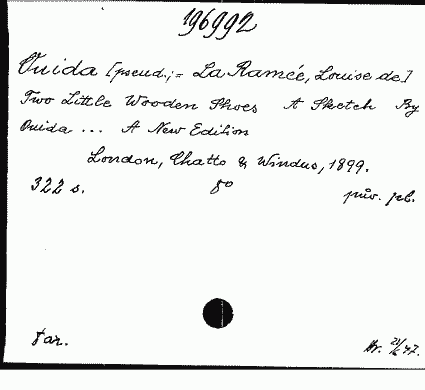 196992
Ouida [pseud.; = La Ramée, Louise de]
Two Little Wooden Shoes A Sketch By
Ouida ... A New Edition
London, Chatto & Windus, 1899.
322 s. 8° pův. pl.
Dar.